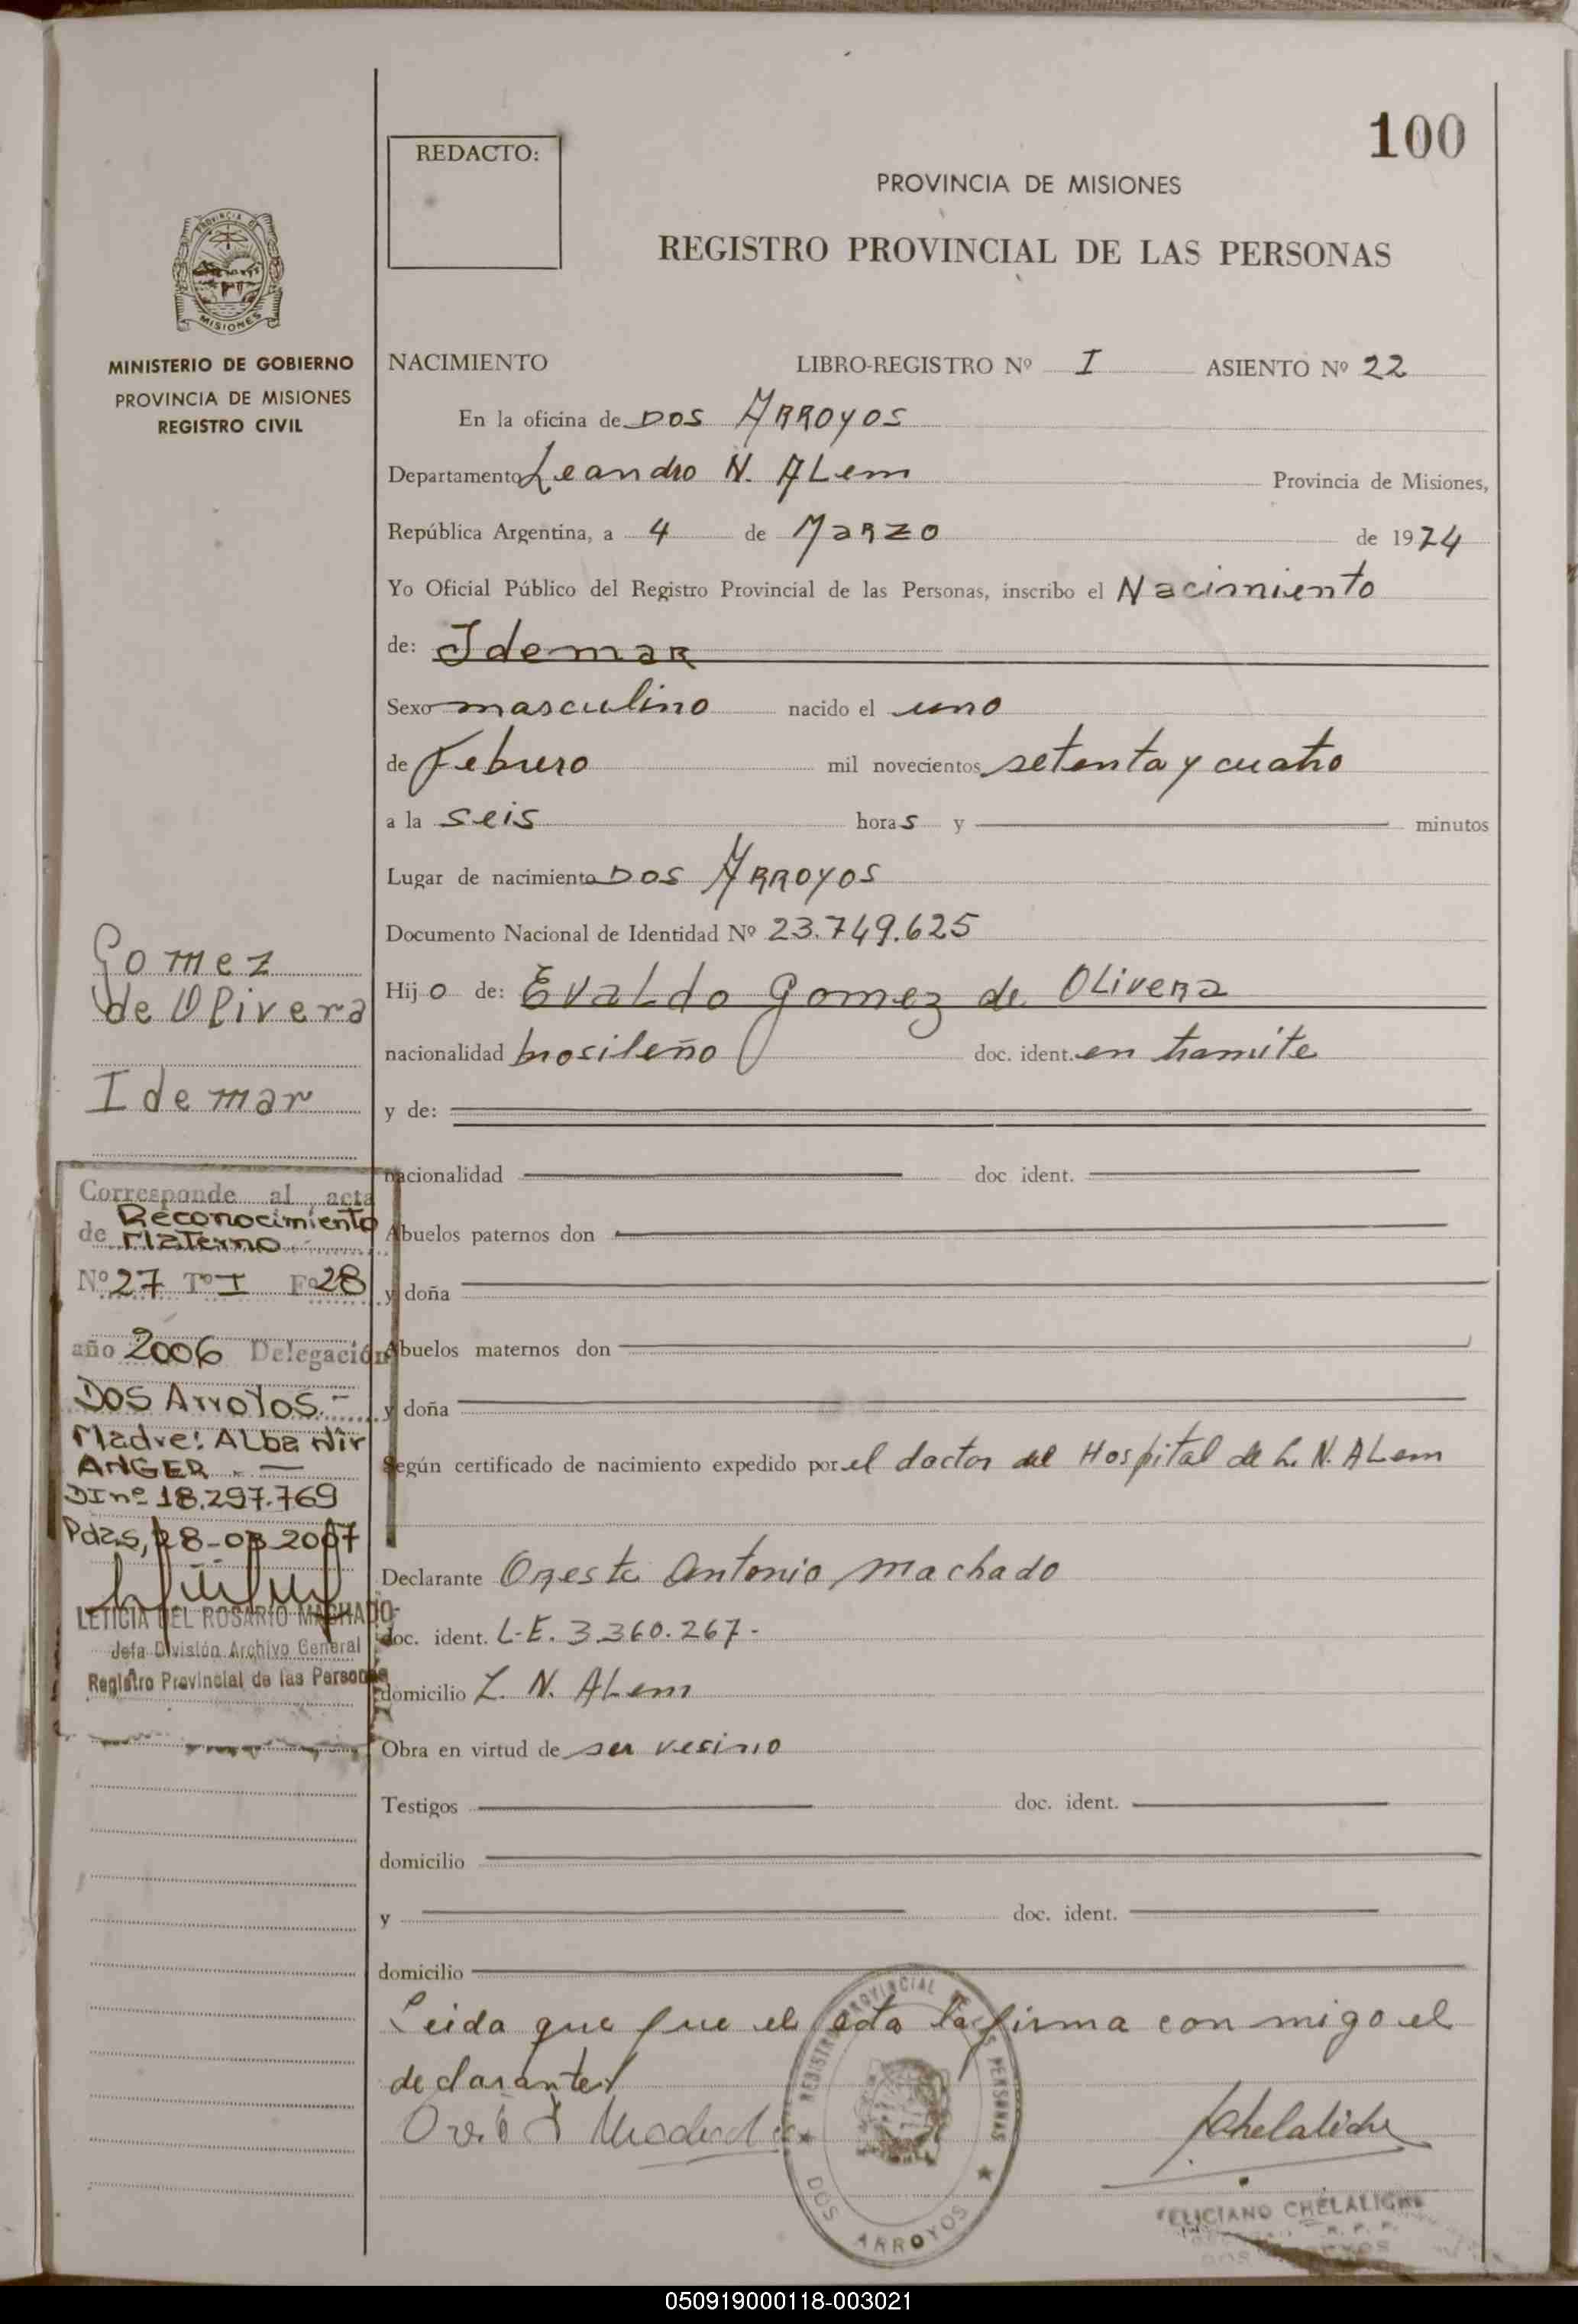 100
REDACTO:
PROVINCIA DE MISIONES
REGISTRO PROVINCIAL DE LAS PERSONAS
PROVINCIA DE
MISIONES
MINISTERIO DE GOBIERNO
PROVINCIA DE MISIONES
REGISTRO CIVIL
NACIMIENTO LIBRO-REGISTRO Nº I ASIENTO Nº 22
En la oficina de DOS ARROYOS
Departamento Leandro N. ALem Provincia de Misiones,
República Argentina, a 4 de Marzo de 1974
Yo Oficial Público del Registro Provincial de las Personas, inscribo el Nacimiento
de: Idemar
Sexo masculino nacido el uno
de Febrero mil novecientos setenta y cuatro
a la seis horas y minutos
Lugar de nacimiento DOS ARROYOS
Documento Nacional de Identidad Nº 23.749.625
Hijo de: Evaldo Gomez de Olivera
nacionalidad brasileño doc. ident. en tramite
y de:
nacionalidad doc ident.
Abuelos paternos don
y doña
Abuelos maternos don
y doña
Según certificado de nacimiento expedido por el doctor del Hospital de L. N. ALem
Declarante Oreste Antonio Machado
doc. ident. L.E. 3.360.267-
domicilio L. N. ALem
Obra en virtud de ser vesino
Testigos doc. ident.
domicilio
y doc. ident.
domicilio
Leida que fue el acta la firma con migo el
declarante
Chelaliche
REGISTRO PROVINCIAL DE LAS PERSONAS
DOS ARROYOS
FELICIANO CHELALICHE
Gomez
de Olivera
Idemar
Corresponde al acta
de Reconocimiento
Materno
Nº 27 Tº I Fº 28
año 2006 Delegación
DOS ArroYos.-
Madre: ALba Nir
ANGER.-
DI nº 18.297.769
Pdas, 28-03-2007
LETICIA DEL ROSARIO MACHADO
Jefa División Archivo General
Registro Provincial de las Personas
050919000118-003021